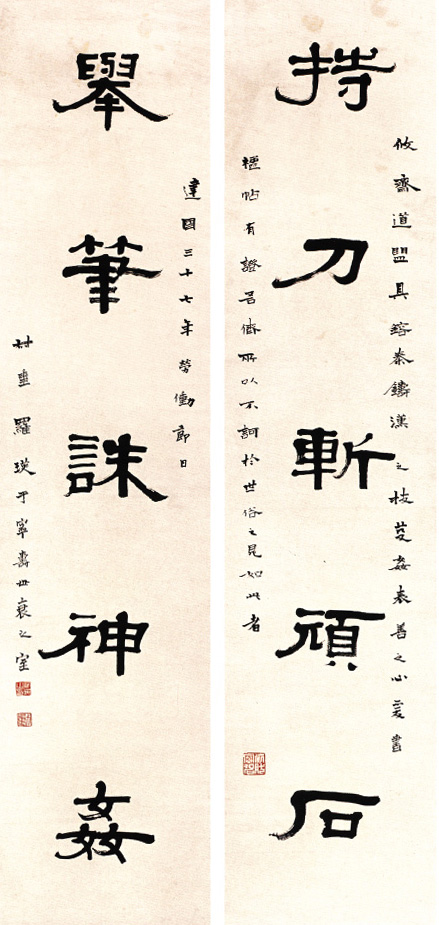 持刀斬頑石
攸齋道盟具鎔秦鑄漢之技葠姦表善之心爰書
楹帖有證吾儕所以不訶於世俗之見如此者
舉筆誅神姦
建國三十七年勞働節日
羅瑛于寧壽世衰之室